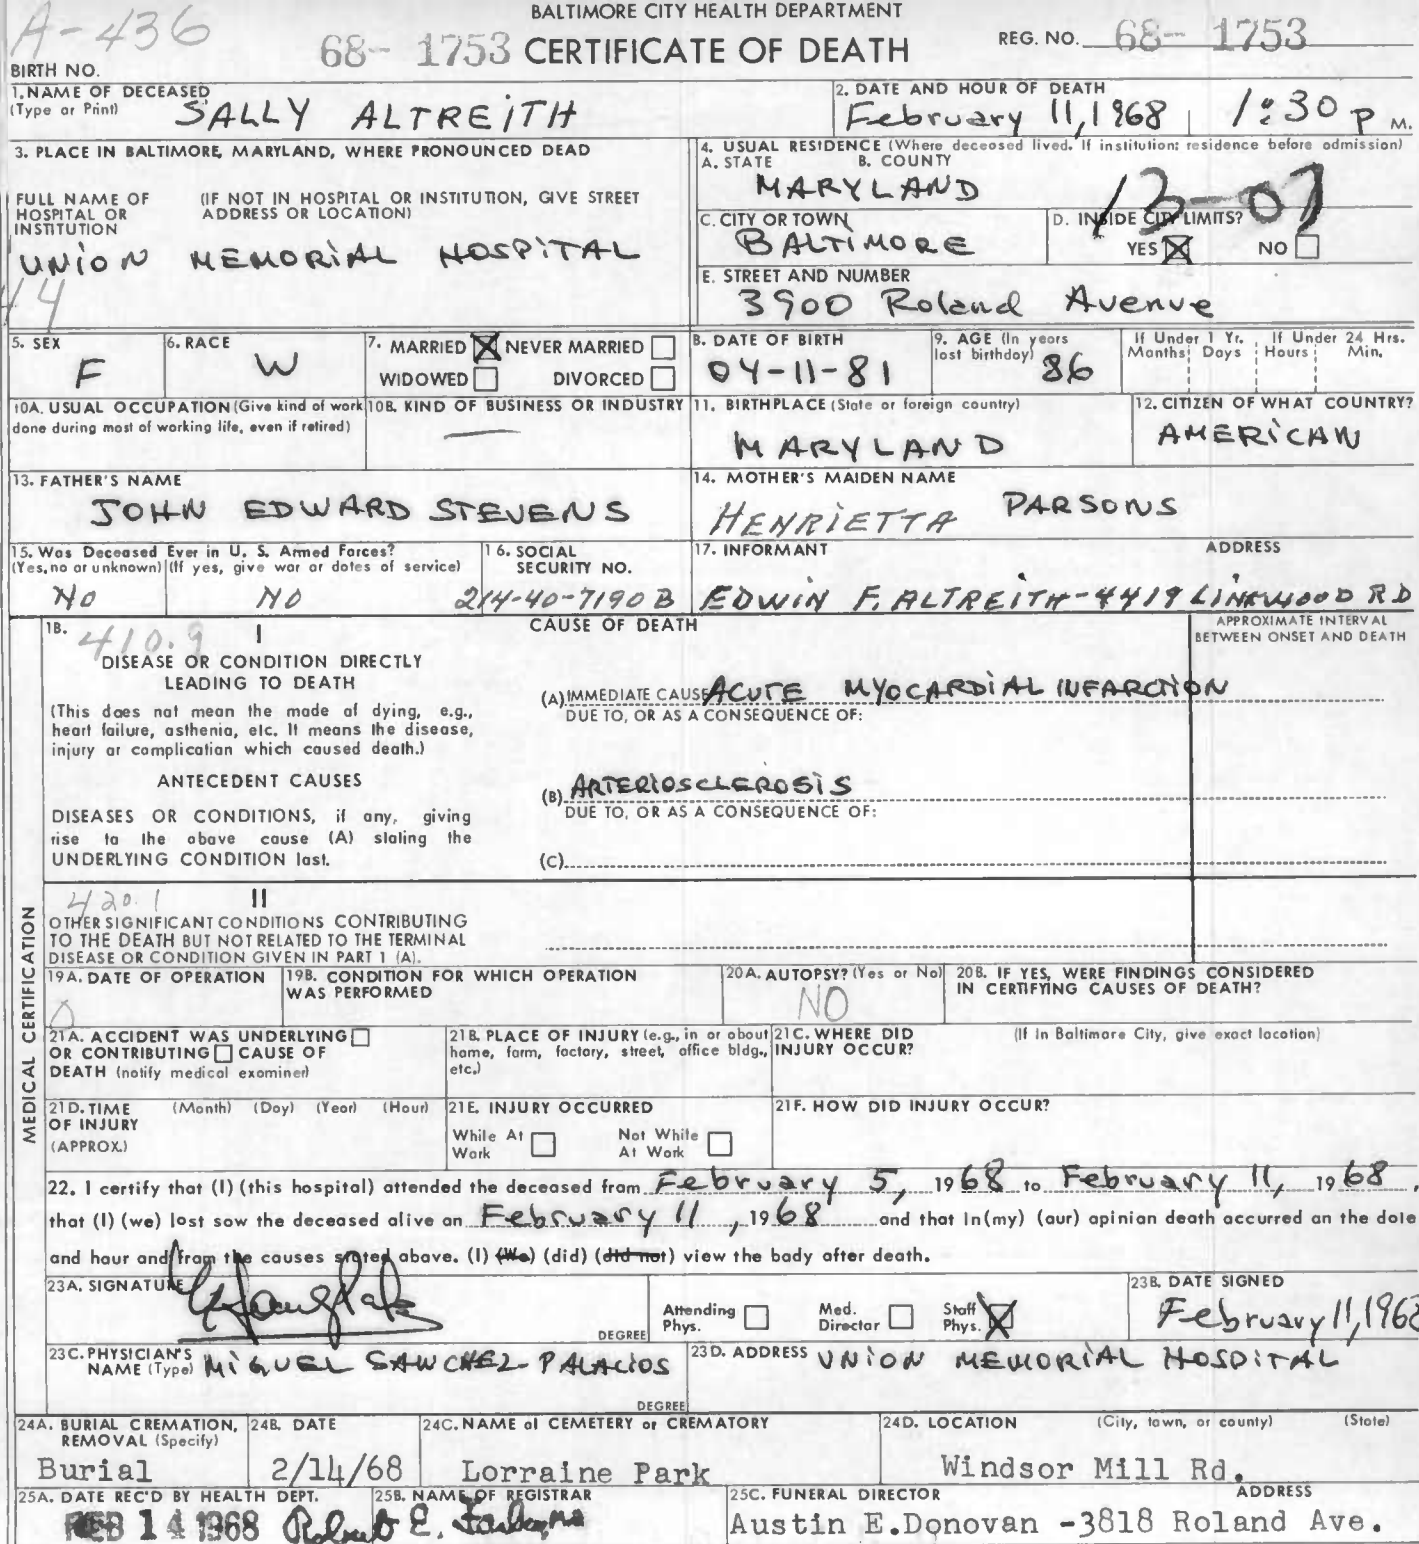 A-436
BALTIMORE CITY HEALTH DEPARTMENT
68- 1753 CERTIFICATE OF DEATH REG. NO. 68- 1753
BIRTH NO.
1. NAME OF DECEASED (Type or Print) SALLY ALTREITH
2. DATE AND HOUR OF DEATH February 11, 1968 1:30 P M.
3. PLACE IN BALTIMORE, MARYLAND, WHERE PRONOUNCED DEAD
FULL NAME OF HOSPITAL OR INSTITUTION (IF NOT IN HOSPITAL OR INSTITUTION, GIVE STREET ADDRESS OR LOCATION)
UNION MEMORIAL HOSPITAL
44
4. USUAL RESIDENCE (Where deceased lived. If institution: residence before admission)
A. STATE B. COUNTY
MARYLAND
13-07
C. CITY OR TOWN BALTIMORE
D. INSIDE CITY LIMITS? YES ☒ NO ☐
E. STREET AND NUMBER
3900 Roland Avenue
5. SEX F
6. RACE W
7. MARRIED ☒ NEVER MARRIED ☐
WIDOWED ☐ DIVORCED ☐
8. DATE OF BIRTH 04-11-81
9. AGE (In years last birthday) 86
If Under 1 Yr. Months Days
If Under 24 Hrs. Hours Min.
10A. USUAL OCCUPATION (Give kind of work done during most of working life, even if retired)
10B. KIND OF BUSINESS OR INDUSTRY —
11. BIRTHPLACE (State or foreign country) MARYLAND
12. CITIZEN OF WHAT COUNTRY? AMERICAN
13. FATHER'S NAME JOHN EDWARD STEVENS
14. MOTHER'S MAIDEN NAME HENRIETTA PARSONS
15. Was Deceased Ever in U. S. Armed Forces?
(Yes, no or unknown) (If yes, give war or dates of service)
No NO
16. SOCIAL SECURITY NO. 214-40-7190 B
17. INFORMANT ADDRESS
EDWIN F. ALTREITH-4419 LINKWOOD RD
MEDICAL CERTIFICATION
18. 410.9 I CAUSE OF DEATH
APPROXIMATE INTERVAL BETWEEN ONSET AND DEATH
DISEASE OR CONDITION DIRECTLY LEADING TO DEATH
(This does not mean the mode of dying, e.g., heart failure, asthenia, etc. It means the disease, injury or complication which caused death.)
(A) IMMEDIATE CAUSE ACUTE MYOCARDIAL INFARCTION
DUE TO, OR AS A CONSEQUENCE OF:
ANTECEDENT CAUSES
DISEASES OR CONDITIONS, if any, giving rise to the above cause (A) stating the UNDERLYING CONDITION last.
(B) ARTERIOSCLEROSIS
DUE TO, OR AS A CONSEQUENCE OF:
(C)
420.1 II
OTHER SIGNIFICANT CONDITIONS CONTRIBUTING TO THE DEATH BUT NOT RELATED TO THE TERMINAL DISEASE OR CONDITION GIVEN IN PART 1 (A).
19A. DATE OF OPERATION 0
19B. CONDITION FOR WHICH OPERATION WAS PERFORMED
20A. AUTOPSY? (Yes or No) NO
20B. IF YES, WERE FINDINGS CONSIDERED IN CERTIFYING CAUSES OF DEATH?
21A. ACCIDENT WAS UNDERLYING ☐ OR CONTRIBUTING ☐ CAUSE OF DEATH (notify medical examiner)
21B. PLACE OF INJURY (e.g., in or about home, farm, factory, street, office bldg., etc.)
21C. WHERE DID INJURY OCCUR? (If in Baltimore City, give exact location)
21D. TIME OF INJURY (APPROX.) (Month) (Day) (Year) (Hour)
21E. INJURY OCCURRED
While At Work ☐ Not While At Work ☐
21F. HOW DID INJURY OCCUR?
22. I certify that (I) (this hospital) attended the deceased from February 5, 1968 to February 11, 1968,
that (I) (we) last saw the deceased alive on February 11, 1968 and that in (my) (our) opinion death occurred on the date
and hour and from the causes stated above. (I) (We) (did) (did not) view the body after death.
23A. SIGNATURE
DEGREE
Attending Phys. ☐ Med. Director ☐ Staff Phys. ☒
23B. DATE SIGNED February 11, 1968
23C. PHYSICIAN'S NAME (Type) MIGUEL SANCHEZ-PALACIOS
DEGREE
23D. ADDRESS UNION MEMORIAL HOSPITAL
24A. BURIAL CREMATION, REMOVAL (Specify) Burial
24B. DATE 2/14/68
24C. NAME of CEMETERY or CREMATORY Lorraine Park
24D. LOCATION (City, town, or county) (State) Windsor Mill Rd.
25A. DATE REC'D BY HEALTH DEPT. FEB 14 1968
25B. NAME OF REGISTRAR Robert E. Farber, MD
25C. FUNERAL DIRECTOR ADDRESS
Austin E. Donovan -3818 Roland Ave.